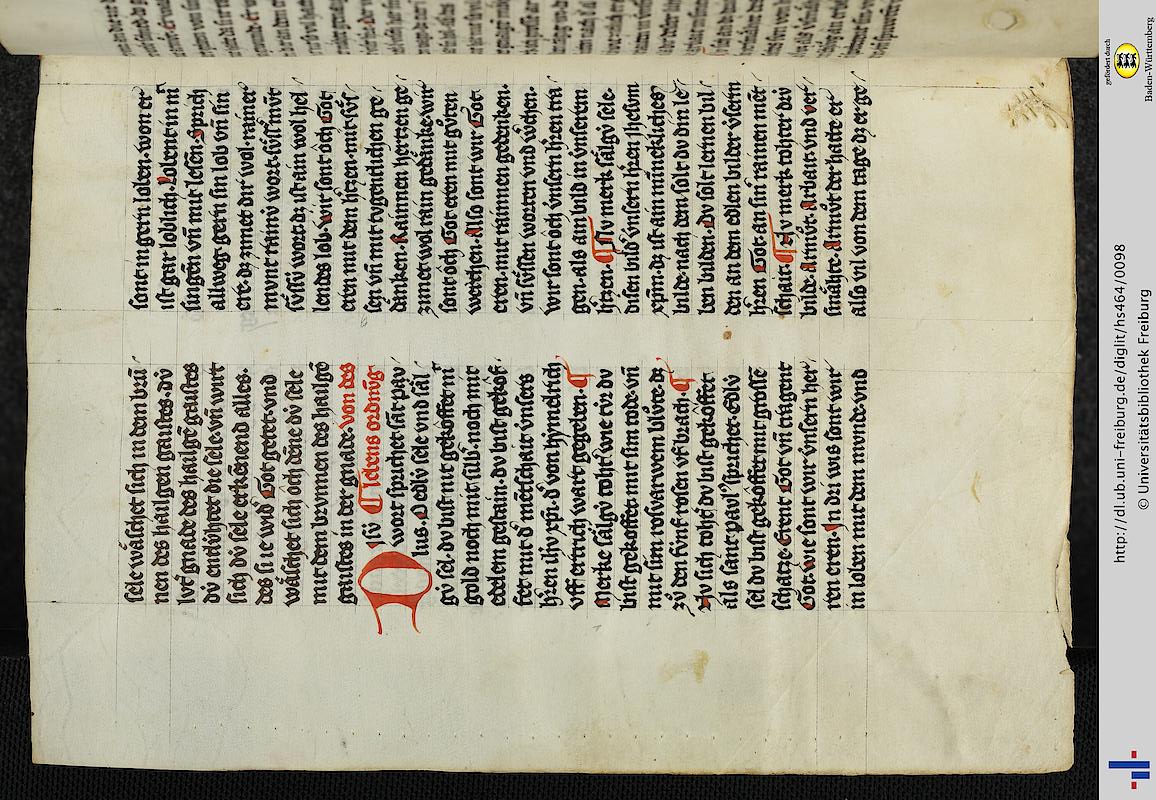 sele wäschet sich in dem brū
nen des hailgen gaistes. dv́
lvt gnade des hailgē gaistes
dv́ entzv́ndet die sele. vn̄ wirt
sich dv́ sele erkēnend alles.
des si ie wid̾ Got getet. vnd
wäschet sich och dēne dv́ sele
mit dem brvnnen des hailgē
gaistes in der gnade. von des
lebens ordnv̄g
Disv́ wort sprichet sāt pav
lus. O edlv́ sele vnd säl
gv́ sel. dv bist nit geköffet mi
gold noch mit silb̾. noch mit
edelem gestain. dv bist geköf
fet mit d̾ mētschait v̓nsers
h̾ren ih̓v xp̄i. d̾ von hymelrich
vff ertrich wart gegeben.
Merke sälgv́ toht̾ wie tv́r dv
bist geköffet. mit sim tode. vn̄
mit sim rosvarwem blv̊te. dz
zv̊ den fv́nf rosen vs brach.
Nv sich toht̾ dv bist geköffet.
als sant pavl' sprichet. Edlv́
sel dv bist geköffet mit grossē
schatze. Erent Got vn̄ tragent
Got. wie sont wir v̓nsern her
ren eren. In dri wis sont wir
in loben mit dem mvnde. vnd
sont in gern loben. won er
ist gar loblich. Lobent in mi
singen vn̄ mit lesen. Sprich
allweg gern sin lob vn̄ sin
ere. dz zimet dir wol. rainer
mvnt rainv́ wort. sv́ss̾ mv̄t
sv́ssv́ wort. dz ist ain wol hel
lendes lob. wir sont och Got
eren mit den h̾tzen. mit sv́f
zen vn̄ mit tvgentlichen ge
dänken. Rainnen hertzen ge
zimet wol rain gedänke. wir
sont och Got eren mit gv̊ten
werchen. Also sont wir Got
eren. mit rainnen gedenken.
vn̄ sv́ssen worten vnd w̾chen.
wir sont och v̓nsern h̾ren tra
gen. als ain bild in v̓nserem
h̾tzen. Nv merk sälgv́ sele.
disen bild v̓nsern h̾ren Jhesvm
xp̄m. dz ist ain minekliches
bilde. nach dem solt dv din le
ben bilden. Dv solt lernen bil
den an dem edlen bilder v̓serm
h̾ren Got. an sin̾ rainen mēt
schait. Nv merk tohter drv́
bilde. Armv̊t. Arbait. vnd ver
smähte. Armv̊t der hate er
also vil von dem tage dz er ge
gefördert durch
Baden-Württemberg
http://dl.ub.uni-freiburg.de/diglit/hs464/0098
© Universitätsbibliothek Freiburg